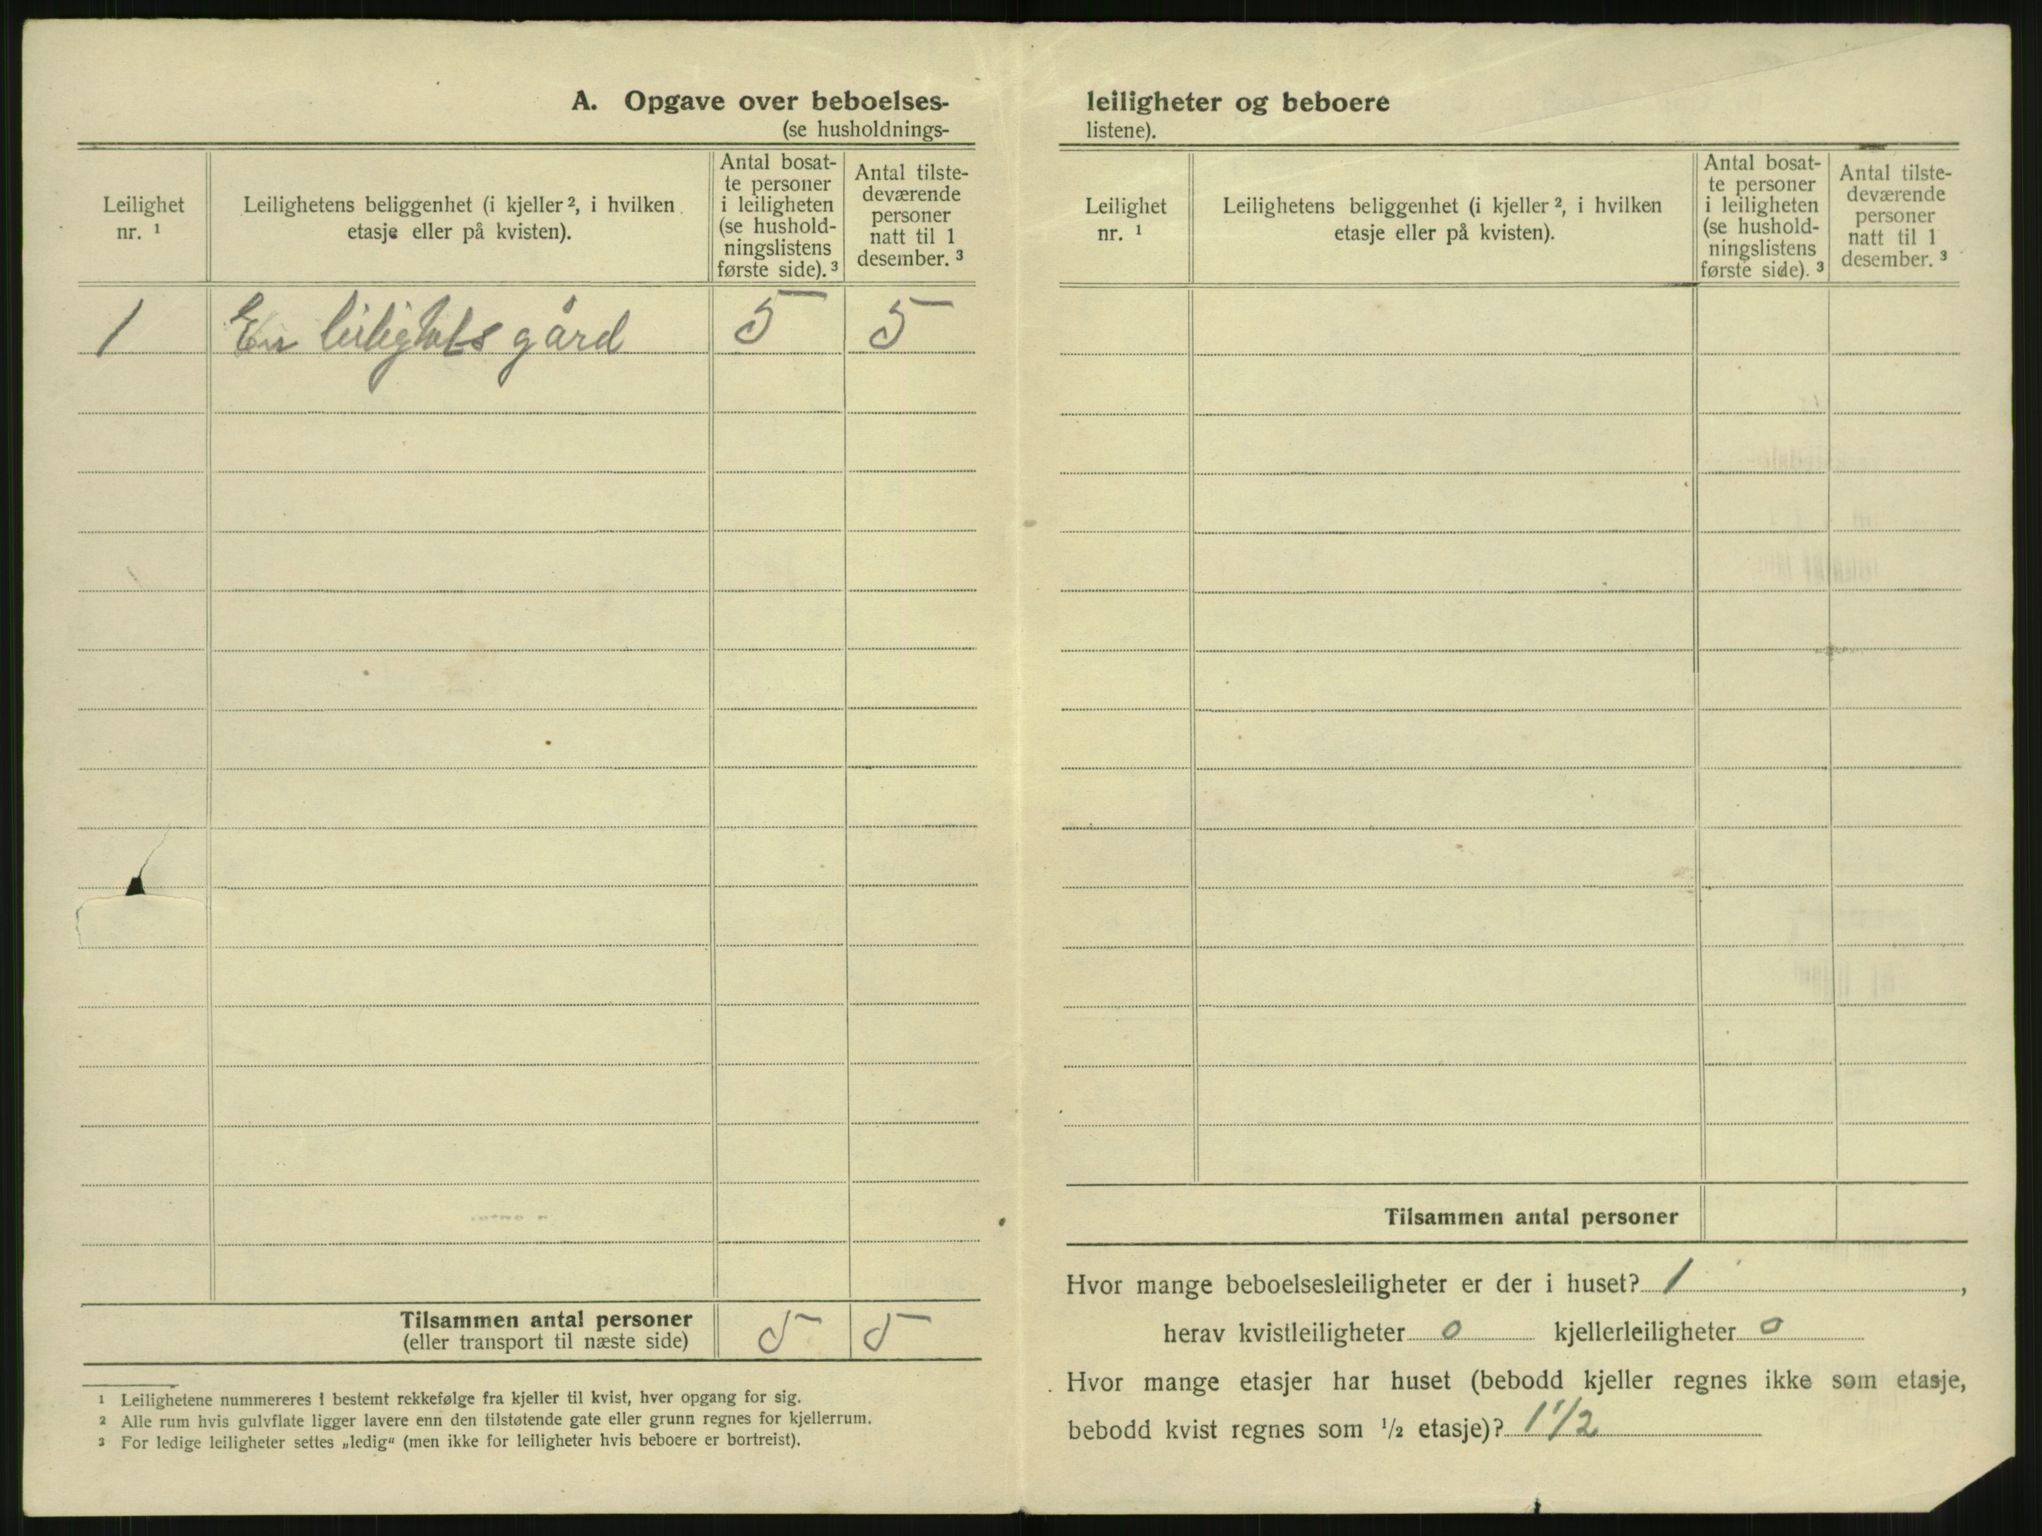 A. Opgave over beboelses-
(se husholdnings-
Leilighet
nr. ¹
Leilighetens beliggenhet (i kjeller ², i hvilken
etasje eller på kvisten).
Antal bosat-
te personer
i leiligheten
(se hushold-
ningslistens
første side). ³
Antal tilste-
deværende
personer
natt til 1
desember. ³
1 En leilighets gård 5 5
Tilsammen antal personer 5 5
(eller transport til næste side)
¹ Leilighetene nummereres i bestemt rekkefølge fra kjeller til kvist, hver opgang for sig.
² Alle rum hvis gulvflate ligger lavere enn den tilstøtende gate eller grunn regnes for kjellerrum.
³ For ledige leiligheter settes „ledig“ (men ikke for leiligheter hvis beboere er bortreist).
leiligheter og beboere
listene).
Leilighet
nr. ¹
Leilighetens beliggenhet (i kjeller ², i hvilken
etasje eller på kvisten).
Antal bosat-
te personer
i leiligheten
(se hushold-
ningslistens
første side). ³
Antal tilste-
deværende
personer
natt til 1
desember. ³
Tilsammen antal personer
Hvor mange beboelsesleiligheter er der i huset? 1,
herav kvistleiligheter 0 kjellerleiligheter 0
Hvor mange etasjer har huset (bebodd kjeller regnes ikke som etasje,
bebodd kvist regnes som ½ etasje)? 1 1/2